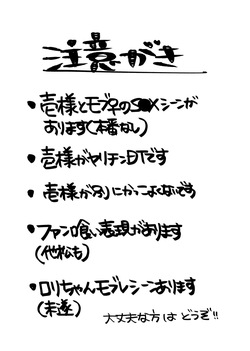 注意がき
• 壱様とモブ♀のS●Xシーンが
あります(本番なし)
• 壱様がヤリチンDTです
• 壱様が別にかっこよくないです
• ファン喰い表現があります
(他松も)
• ロリちゃんモブレシーンあります
(未遂)
大丈夫な方は どうぞ!!